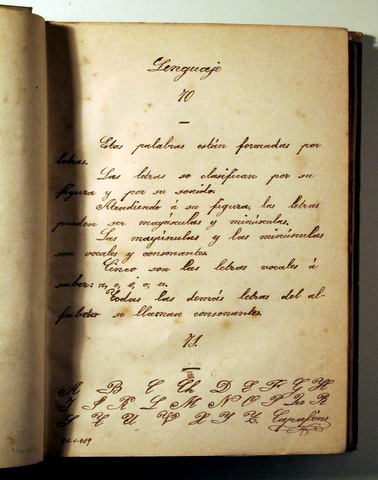 Lenguaje
70
Estas palabras están formadas por
letras.
Las letras se clasifican por su
figura y por su sonido.
Atendiendo á su figura, las letras
pueden ser mayúsculas y minúsculas.
Las mayúsculas y las minúsculas
son vocales y consonantes.
Cinco son las letras vocales á
saber: a, e, i, o, u.
Todas las demás letras del al-
fabeto se llaman consonantes.
71
A B C Ch D E F G H
I J K L M N O P Qu R
S T U V X Y Z